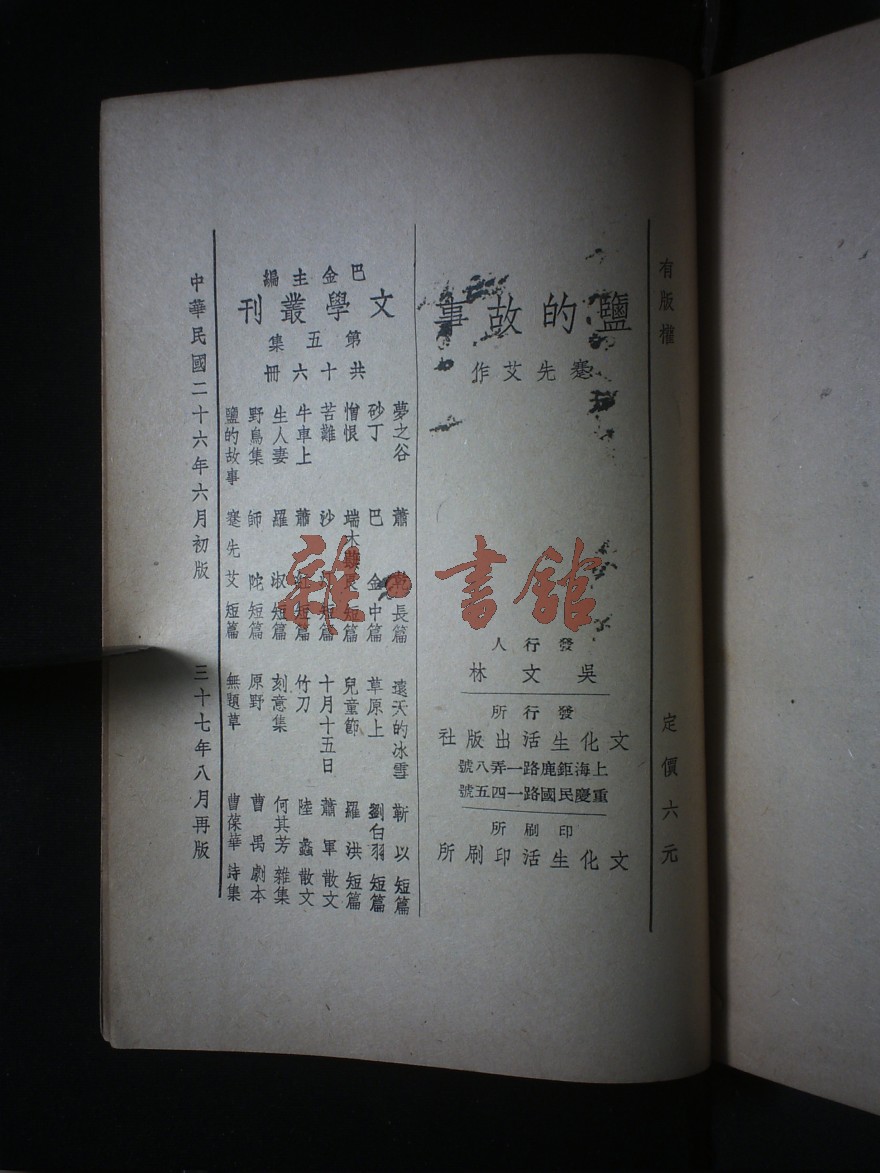 有版權
定價六元
鹽的故事
蹇先艾作
發行人
吳文林
發行所
文化生活出版社
上海鉅鹿路一弄八號
重慶民國路一四五號
印刷所
文化生活印刷所
巴金主編
文學叢刊
第五集
共十六冊
夢之谷 蕭乾 長篇
砂丁 巴金 中篇
憎恨 端木蕻良 短篇
苦難 沙汀 短篇
牛車上 蕭紅 短篇
生人妻 羅淑 短篇
野鳥集 師陀 短篇
鹽的故事 蹇先艾 短篇
遠天的冰雪 靳以 短篇
草原上 劉白羽 短篇
兒童節 羅洪 短篇
十月十五日 蕭軍 散文
竹刀 陸蠡 散文
刻意集 何其芳 雜集
原野 曹禺 劇本
無題草 曹葆華 詩集
中華民國二十六年六月初版 三十七年八月再版
雜·書館